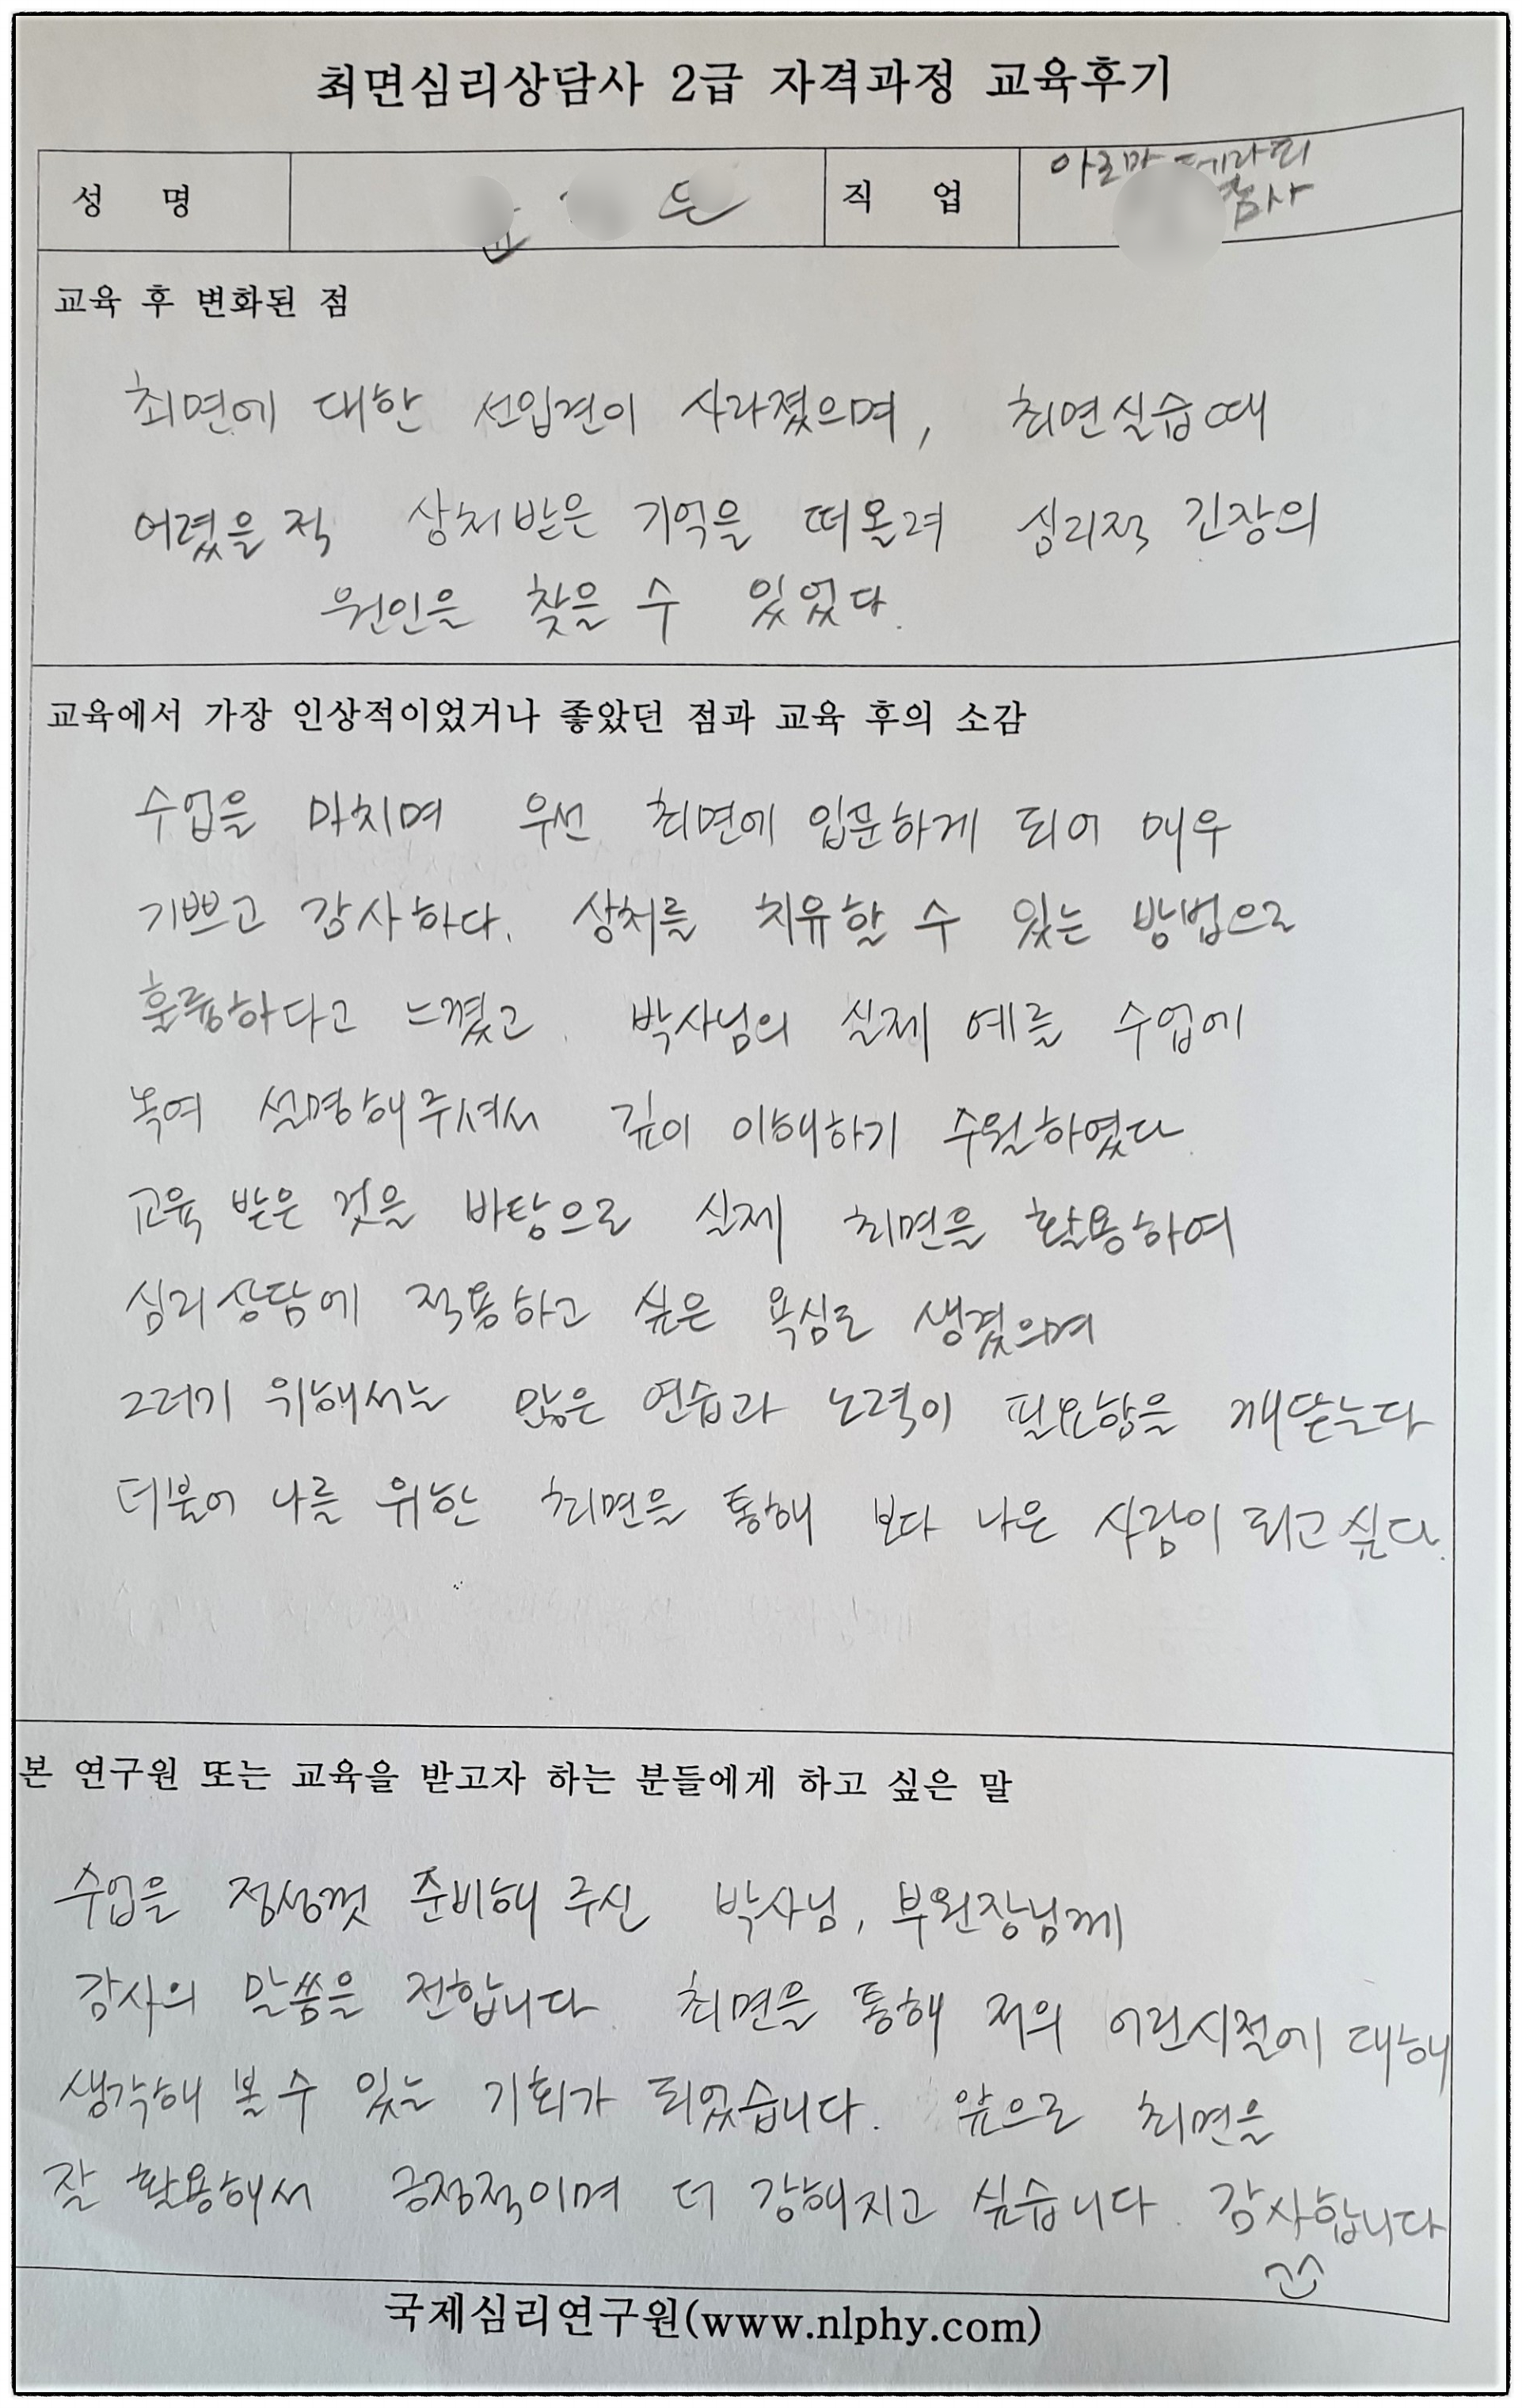 최면심리상담사 2급 자격과정 교육후기
성 명
직 업
아로마 테라피
강사
교육 후 변화된 점
최면에 대한 선입견이 사라졌으며, 최면실습때
어렸을적 상처받은 기억을 떠올려 심리적 긴장의
원인을 찾을 수 있었다.
교육에서 가장 인상적이었거나 좋았던 점과 교육 후의 소감
수업을 마치며 우선 최면에 입문하게 되어 매우
기쁘고 감사하다. 상처를 치유할 수 있는 방법으로
훌륭하다고 느꼈고. 박사님의 실제 예를 수업에
녹여 설명해주셔서 깊이 이해하기 수월하였다.
교육 받은 것을 바탕으로 실제 최면을 활용하여
심리상담에 적용하고 싶은 욕심도 생겼으며
그러기 위해서는 많은 연습과 노력이 필요함을 깨닫는다
더불어 나를 위한 최면을 통해 보다 나은 사람이 되고싶다.
본 연구원 또는 교육을 받고자 하는 분들에게 하고 싶은 말
수업을 정성껏 준비해 주신 박사님, 부원장님께
감사의 말씀을 전합니다. 최면을 통해 저의 어린시절에 대해
생각해 볼 수 있는 기회가 되었습니다. 앞으로 최면을
잘 활용해서 긍정적이며 더 강해지고 싶습니다. 감사합니다
국제심리연구원(www.nlphy.com)